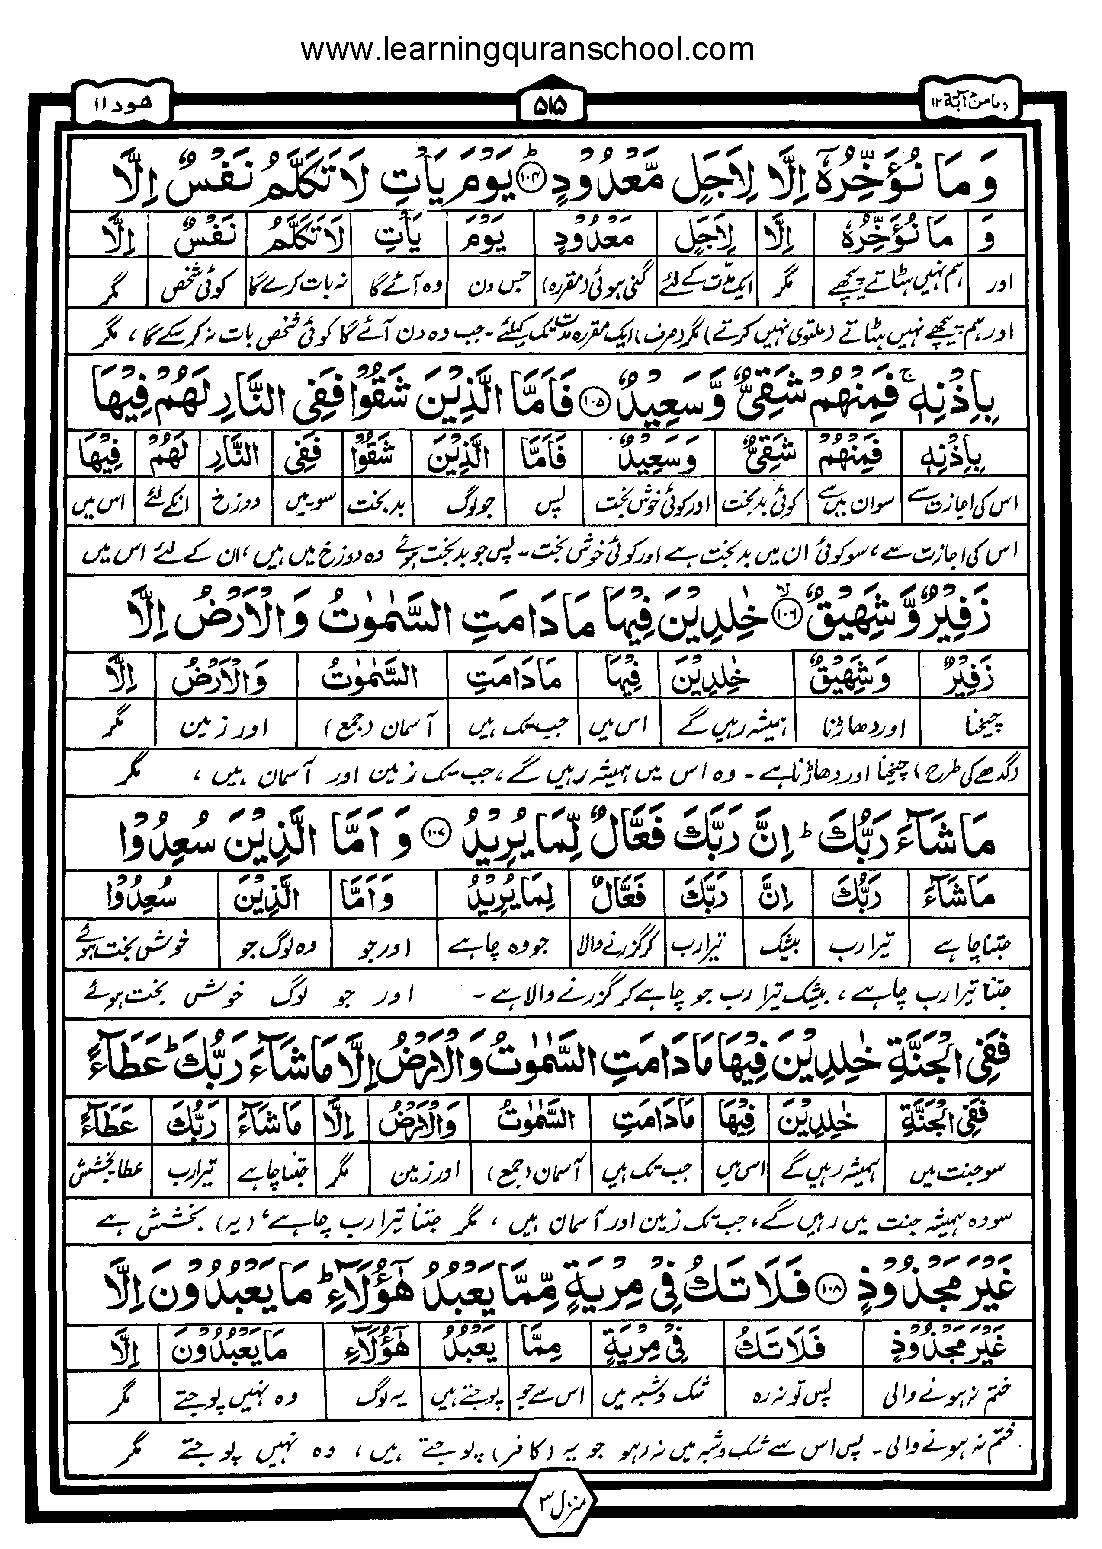 www.learningquranschool.com
ومامن دآبة ۱۲
۵۱۵
هود ۱۱
وَمَا نُؤَخِّرُهٗۤ اِلَّا لِاَجَلٍ مَّعْدُوْدٍ ۱۰۴ یَوْمَ یَاْتِ لَا تَكَلَّمُ نَفْسٌ اِلَّا
وَ مَا نُؤَخِّرُهٗ اِلَّا لِاَجَلٍ مَعْدُوْدٍ یَوْمَ یَاْتِ لَا تَكَلَّمُ نَفْسٌ اِلَّا
اور ہم نہیں ہٹاتے پیچھے مگر ایک مدّت کے لئے گنی ہوئی (مقررہ) جس دن وہ آئے گا نہ بات کرے گا کوئی شخص مگر
اور ہم پیچھے نہیں ہٹاتے (ملتوی نہیں کرتے) مگر (صرف) ایک مقررہ مدت تک کیلئے ۔ جب وہ دن آئے گا کوئی شخص بات نہ کر سکے گا ، مگر
بِاِذْنِهٖ ۚ فَمِنْهُمْ شَقِیٌّ وَّسَعِیْدٌ ۱۰۵ فَاَمَّا الَّذِیْنَ شَقُوْا فَفِی النَّارِ لَهُمْ فِیْهَا
بِاِذْنِهٖ فَمِنْهُمْ شَقِیٌّ وَسَعِیْدٌ فَاَمَّا الَّذِیْنَ شَقُوْا فَفِی النَّارِ لَهُمْ فِیْهَا
اس کی اجازت سے سو ان میں سے کوئی بدبخت اور کوئی خوش بخت پس جو لوگ بدبخت سو میں دوزخ انکے لئے اس میں
اس کی اجازت سے ، سو کوئی ان میں بدبخت ہے اور کوئی خوش بخت ۔ پس جو بدبخت ہوئے وہ دوزخ میں ہیں ، ان کے لئے اس میں
زَفِیْرٌ وَّشَهِیْقٌ ۱۰۶ خٰلِدِیْنَ فِیْهَا مَا دَامَتِ السَّمٰوٰتُ وَالْاَرْضُ اِلَّا
زَفِیْرٌ وَشَهِیْقٌ خٰلِدِیْنَ فِیْهَا مَا دَامَتِ السَّمٰوٰتُ وَالْاَرْضُ اِلَّا
چیخنا اور دھاڑنا ہمیشہ رہیں گے اس میں جب تک ہیں آسمان (جمع) اور زمین مگر
(گدھے کی طرح) چیخنا اور دھاڑنا ہے ۔ وہ اس میں ہمیشہ رہیں گے ، جب تک زمین اور آسمان ہیں ، مگر
مَا شَآءَ رَبُّكَ ؕ اِنَّ رَبَّكَ فَعَّالٌ لِّمَا یُرِیْدُ ۱۰۷ وَ اَمَّا الَّذِیْنَ سُعِدُوْا
مَا شَآءَ رَبُّكَ اِنَّ رَبَّكَ فَعَّالٌ لِمَا یُرِیْدُ وَاَمَّا الَّذِیْنَ سُعِدُوْا
جتنا چاہے تیرا رب بیشک تیرا رب کر گزرنے والا جو وہ چاہے اور جو وہ لوگ جو خوش بخت ہوئے
جتنا تیرا رب چاہے ، بیشک تیرا رب جو چاہے کر گزرنے والا ہے ۔ اور جو لوگ خوش بخت ہوئے
فَفِی الْجَنَّةِ خٰلِدِیْنَ فِیْهَا مَا دَامَتِ السَّمٰوٰتُ وَالْاَرْضُ اِلَّا مَا شَآءَ رَبُّكَ ؕ عَطَآءً
فَفِی الْجَنَّةِ خٰلِدِیْنَ فِیْهَا مَا دَامَتِ السَّمٰوٰتُ وَالْاَرْضُ اِلَّا مَا شَآءَ رَبُّكَ عَطَآءً
سو جنت میں ہمیشہ رہیں گے اس میں جب تک ہیں آسمان (جمع) اور زمین مگر جتنا چاہے تیرا رب عطا بخشش
سو وہ ہمیشہ جنت میں رہیں گے ، جب تک زمین اور آسمان ہیں ، مگر جتنا تیرا رب چاہے ، (یہ) بخشش ہے
غَیْرَ مَجْذُوْذٍ ۱۰۸ فَلَا تَكُ فِیْ مِرْیَةٍ مِّمَّا یَعْبُدُ هٰۤؤُلَآءِ ؕ مَا یَعْبُدُوْنَ اِلَّا
غَیْرَ مَجْذُوْذٍ فَلَا تَكُ فِیْ مِرْیَةٍ مِمَّا یَعْبُدُ هٰۤؤُلَآءِ مَا یَعْبُدُوْنَ اِلَّا
ختم نہ ہونے والی پس تو نہ رہ شک و شبہ میں اس سے جو پوجتے ہیں یہ لوگ وہ نہیں پوجتے مگر
ختم نہ ہونے والی ۔ پس اس سے شک و شبہ میں نہ رہو جو یہ (کافر) پوجتے ہیں ، وہ نہیں پوجتے مگر
منزل ۳